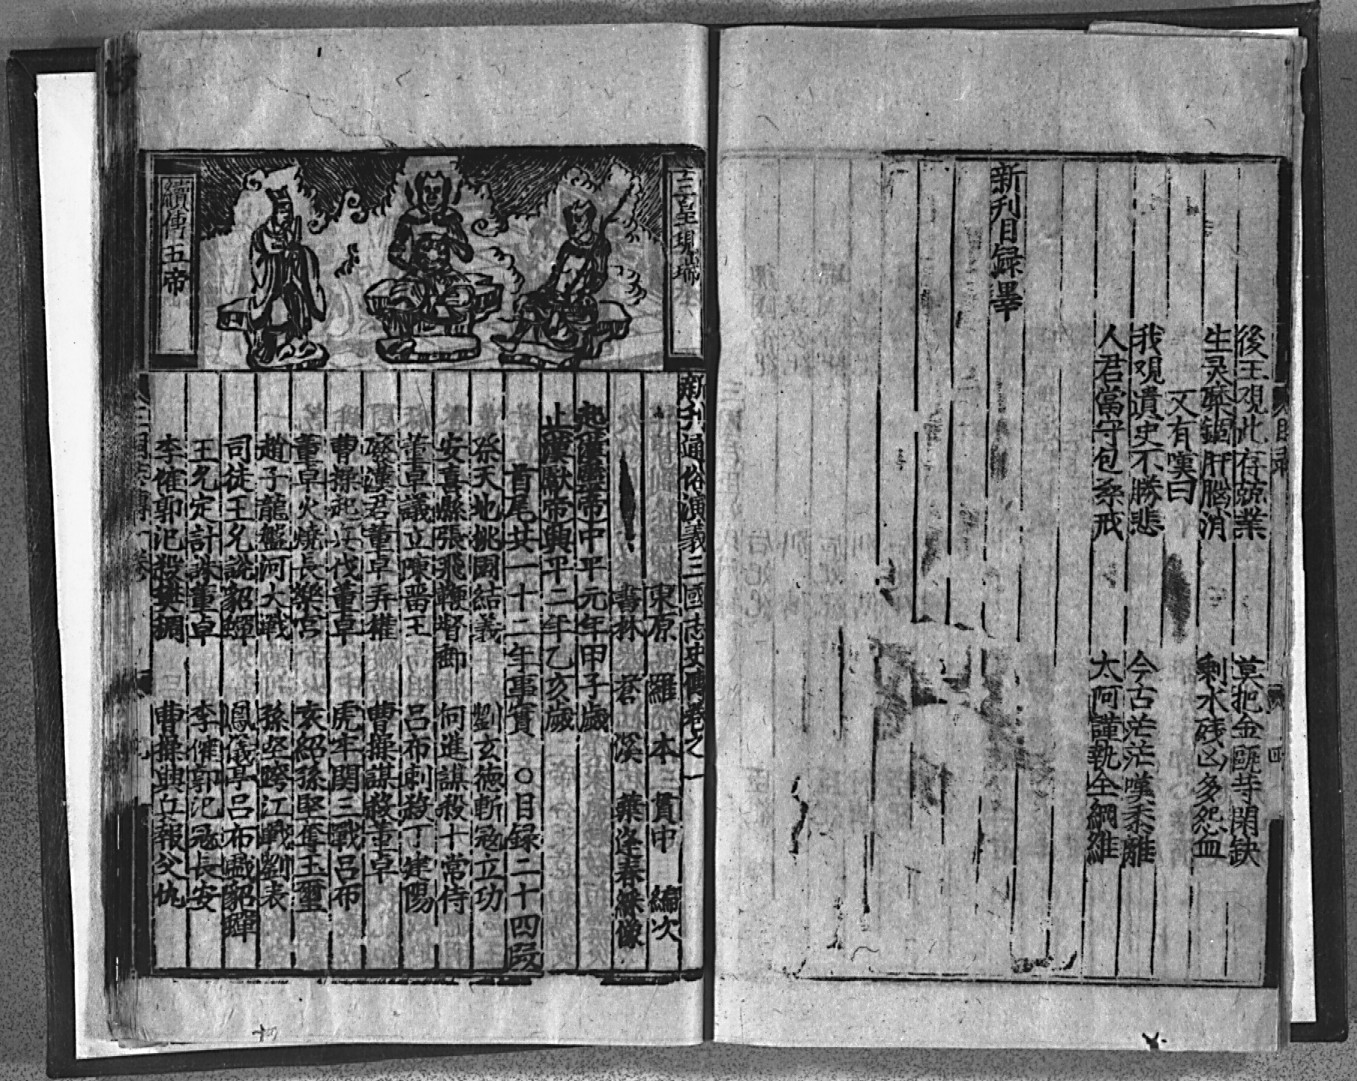 後王覌此存兢業　莫把金匱等閑缺
生灵藥鍋肝腦消　剩水残凶多怨血
又有嘆曰
我覌遺史不勝悲　今古茫茫嘆黍離
人君當守包桑戒　太阿謹執全綱維
新刊目録畢
三皇現瑞
續傳五帝
新刊通俗演義三國志史傳卷之一
東原　羅　本　貫中　編次
書林　蒼溪　葉逢春綵像
起漢靈帝中平元年甲子歲
止漢獻帝興平二年乙亥歲
首尾共一十二年事實　○目録二十四段
祭天地桃園結義　劉玄德斬寇立功
安喜縣張飛鞭督郵　何進謀殺十常侍
董卓議立陳留王　呂布刺殺丁建陽
廢漢君董卓弄權　曹操謀殺董卓
曹操起兵伐董卓　虎牢関三戰呂布
董卓火燒長樂宮　袁紹孫堅奪玉璽
趙子龍盤河大戰　孫堅跨江戰劉表
司徒王允說貂蟬　鳳儀亭呂布戲貂蟬
王允定計誅董卓　李傕郭汜冦長安
李傕郭汜殺樊稠　曹操興兵報父仇